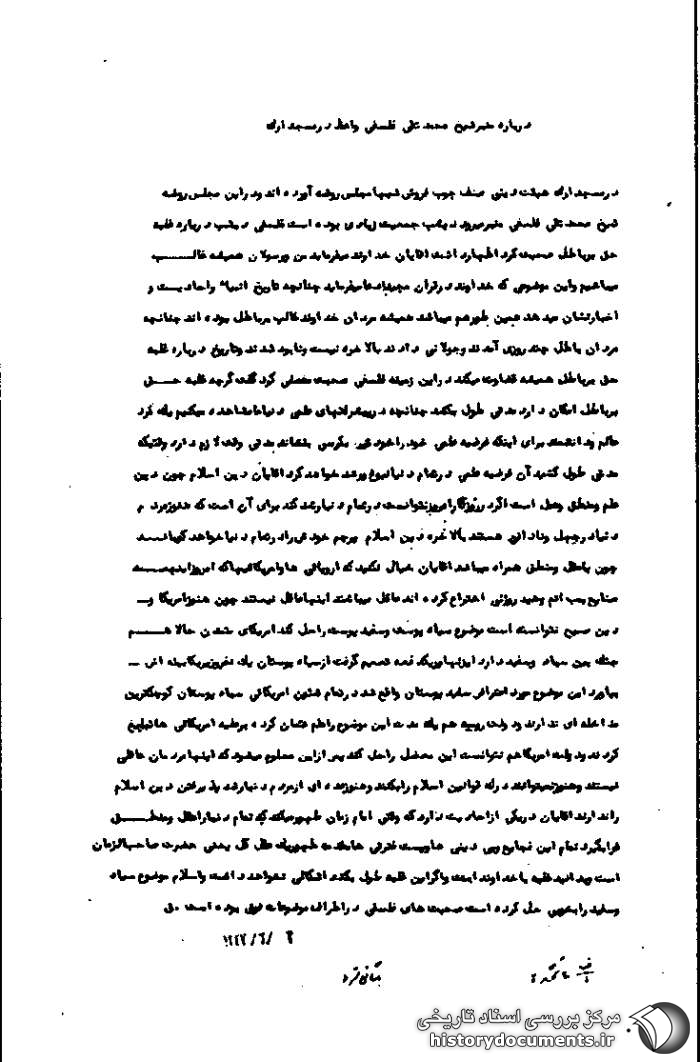 درباره منبر شیخ محمد تقی فلسفی واعظ در مسجد ارک
در مسجد ارک هیئت دینی صنف چوب فروش شبها مجلس روضه آورده اند و در این مجلس روضه
شیخ محمد تقی فلسفی منبر میرود دیشب جمعیت زیادی بوده است فلسفی دیشب درباره غلبه
حق بر باطل صحبت کرد اظهار داشت آقایان خداوند میفرماید من و رسولان همیشه غالب
میباشیم و این موضوعی که خداوند در قرآن مجید میفرماید چنانچه تاریخ انبیاء و احادیث و
اخبار نشان میدهد همین طور هم میباشد همیشه مردان خداوند غالب بر باطل بوده اند چنانچه
مردان باطل چند روزی آمدند و جولانی دادند بالاخره نیست و نابود شدند و تاریخ درباره غلبه
حق بر باطل همیشه قضاوت میکند در این زمینه فلسفی صحبت مفصلی کرد گفت گرچه غلبه حق
بر باطل امکان دارد مدتی طول بکشد چنانچه در پیشرفتهای علمی دنیا مشاهده میکنیم یک فرد
عالم و دانشمند برای اینکه فرضیه علمی خود را بکرسی بنشاند مدتی وقت لازم دارد وقتیکه
مدتی طول کشید آن فرضیه علمی در تمام دنیا نبوغ خواهد کرد آقایان دین اسلام چون دین
علم و منطق و عقل است اگر در روزگار امروز نتوانست در تمام دنیا رشد کند برای آن است که هنوز مردم
دنیا در جهل و نادانی هستند بالاخره دین اسلام پرچم خود را در تمام دنیا خواهد کوبانید
چون با عقل و منطق همراه میباشد آقایان خیال نکنید که اروپائی ها و امریکائیها که امروز اینهمه
صنایع بمب اتم و هیدروژنی اختراع کرده اند عاقل میباشند اینها عاقل نیستند چون هنوز امریکا و
دین مسیح نتوانسته است موضوع سیاه پوست و سفید پوست را حل کند امریکای متمدن حالا هم
جنگ بین سیاه و سفید دارد آیزنهاور یک دفعه تصمیم گرفت از سیاه پوستان یک نفر وزیر بکابینه اش
بیاورد این موضوع مورد اعتراض سفید پوستان واقع شد در تمام شئون امریکائی سیاه پوستان کوچکترین
مداخله ای ندارند دولت روسیه هم یک مدت این موضوع را علم نشان کرده بر علیه امریکائی ها تبلیغ
کردند دولت امریکا هم نتوانست این معضل را حل کند پس از این معلوم میشود که اینها مردمان عاقلی
نیستند و هنوز نمیتوانند درک قوانین اسلام را بکنند و هنوز عده ای از مردم دنیا رشد پذیرفتن دین اسلام
را ندارند آقایان در یکی از احادیث دارد که وقتی امام زمان ظهور میکند که تمام دنیا را عقل و منطق
فراگیرد تمام این فجایع و بی دینی ها و پست فطرتی ها مقدمه ظهور یک عقل کل یعنی حضرت صاحب الزمان
است بدانید غلبه با خداوند است و اگر این غلبه طول بکشد اشکالی نخواهد داشت و اسلام موضوع سیاه
و سفید را بخوبی حل کرده است صحبت های فلسفی در اطراف موضوعات فوق بوده است. ق
۱۳۴۲/۶/۴
مرکز بررسی اسناد تاریخی
historydocuments.ir